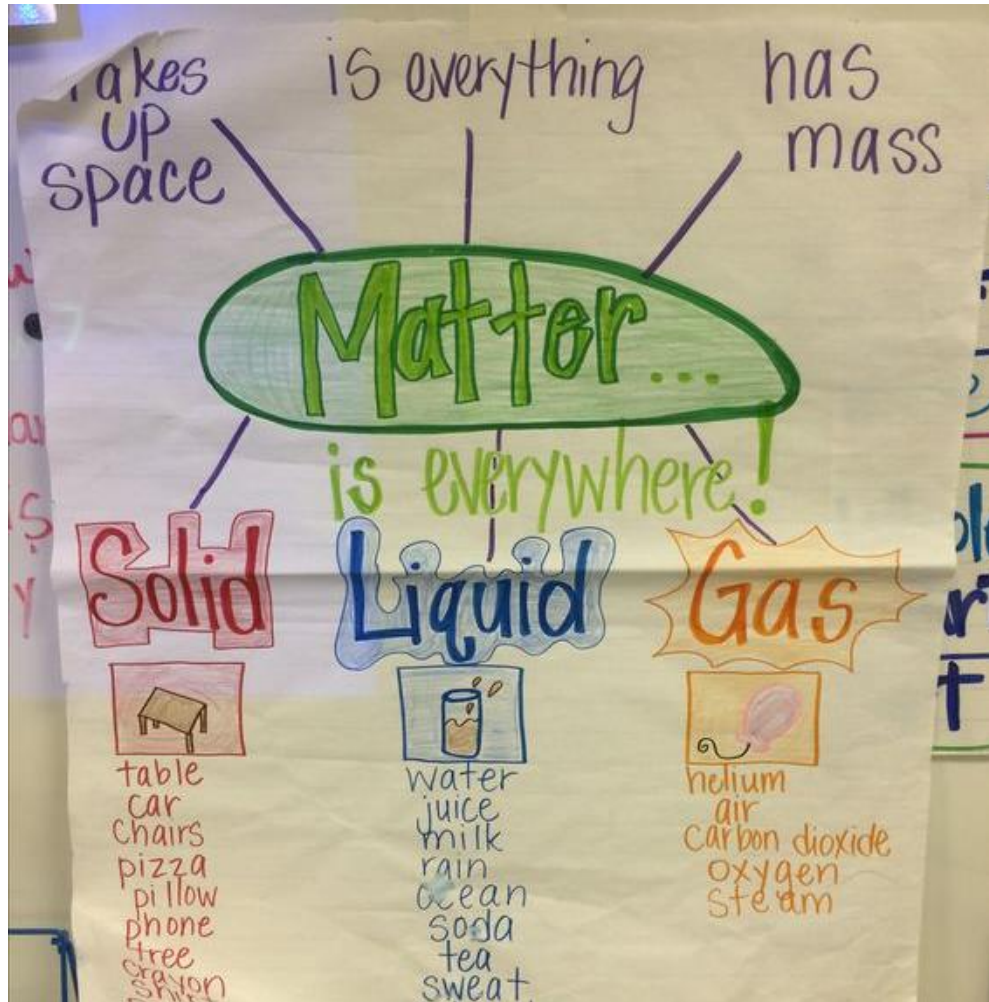 Takes
up
space
is everything
has
mass
Matter...
is everywhere!
Solid
table
car
chairs
pizza
pillow
phone
tree
crayon
Liquid
water
juice
milk
rain
ocean
soda
tea
sweat
Gas
helium
air
carbon dioxide
oxygen
steam